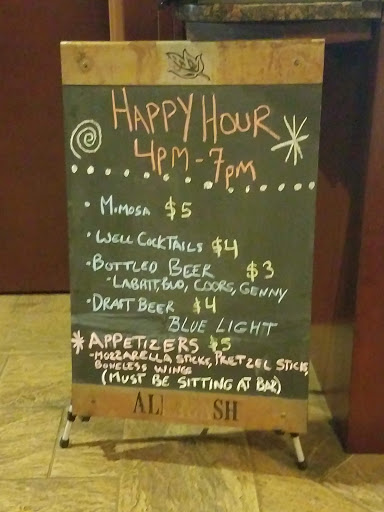 HAPPY HOUR
4PM - 7PM
• MIMOSA $5
• WELL COCKTAILS $4
• BOTTLED BEER $3
- LABATT, BUD, COORS, GENNY
• DRAFT BEER $4
BLUE LIGHT
* APPETIZERS $5
- MOZZARELLA STICKS, PRETZEL STICKS
BONELESS WINGS
(MUST BE SITTING AT BAR)